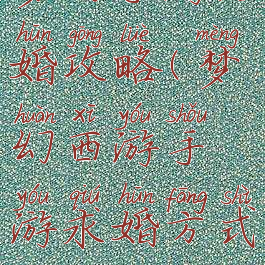 hūn gōng lüè mèng
婚攻略(梦
huàn xī yóu shǒu
幻西游手
yóu qiú hūn fāng shì
游求婚方式